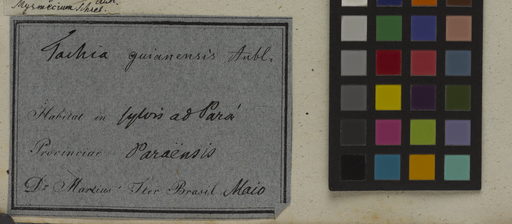 Myrmecium Schreb.
Tachia guianensis Aubl.
Habitat in sylvis ad Pará
Provinciae Paraënsis
Dr. Martius Iter Brasil. Maio